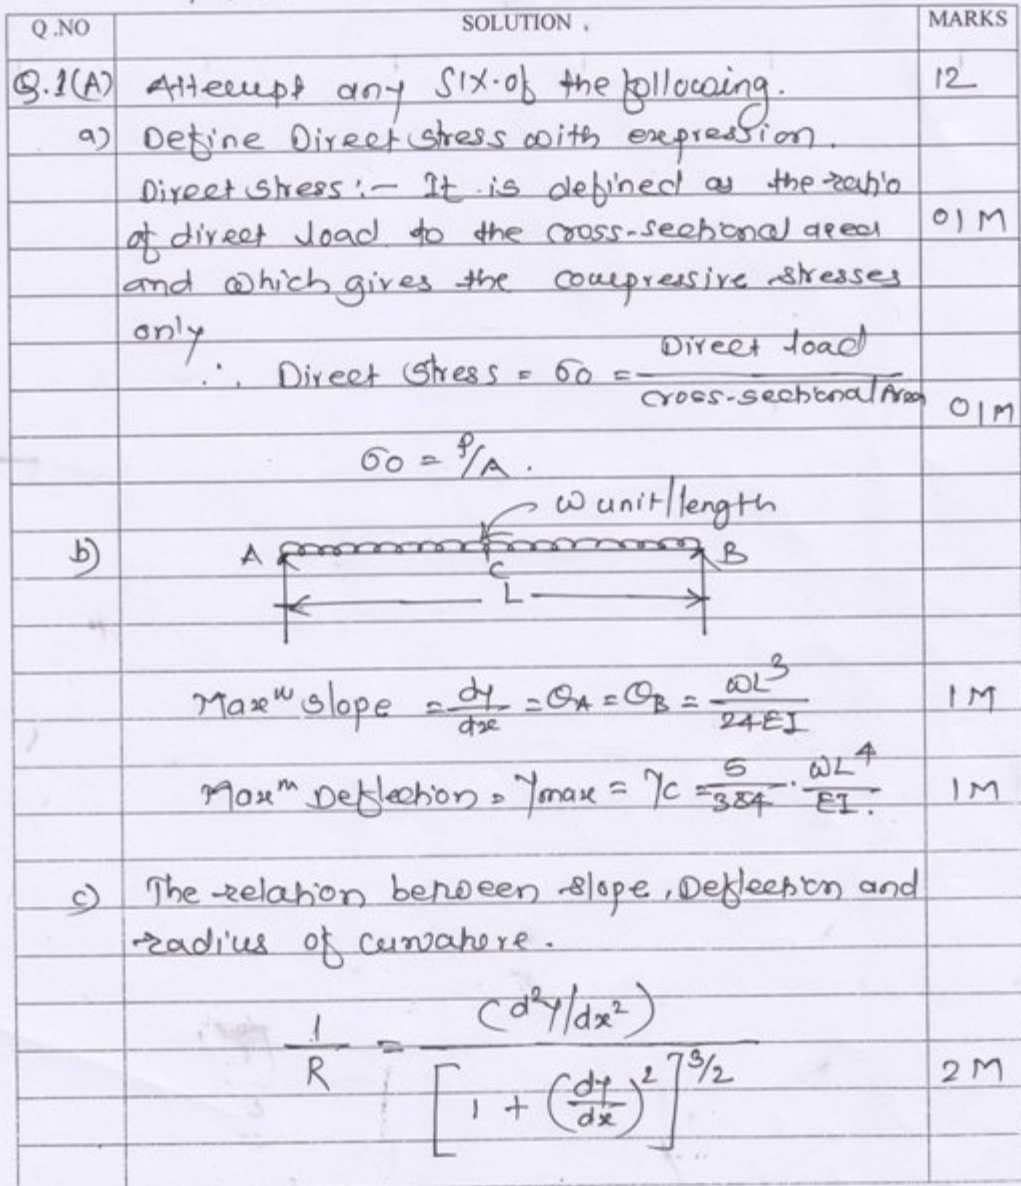 Q.NO SOLUTION . MARKS
Q.1(A) Attempt any SIX of the following. 12
a) Define Direct stress with expression.
Direct stress :- It is defined as the ratio
of direct load to the cross-sectional area 01M
and which gives the compressive stresses
only
∴ Direct Stress = σo = Direct load / cross-sectional Area 01M
σo = P/A.
ω unit/length
b) A B
C
L
Maxᵐ slope = dy/dx = θA = θB = ωL³/24EI 1M
Maxᵐ Deflection = Ymax = Yc = 5/384 . ωL⁴/EI. 1M
c) The relation between slope, Deflection and
radius of curvature.
1/R = (d²y/dx²) / [1 + (dy/dx)²]^3/2 2M